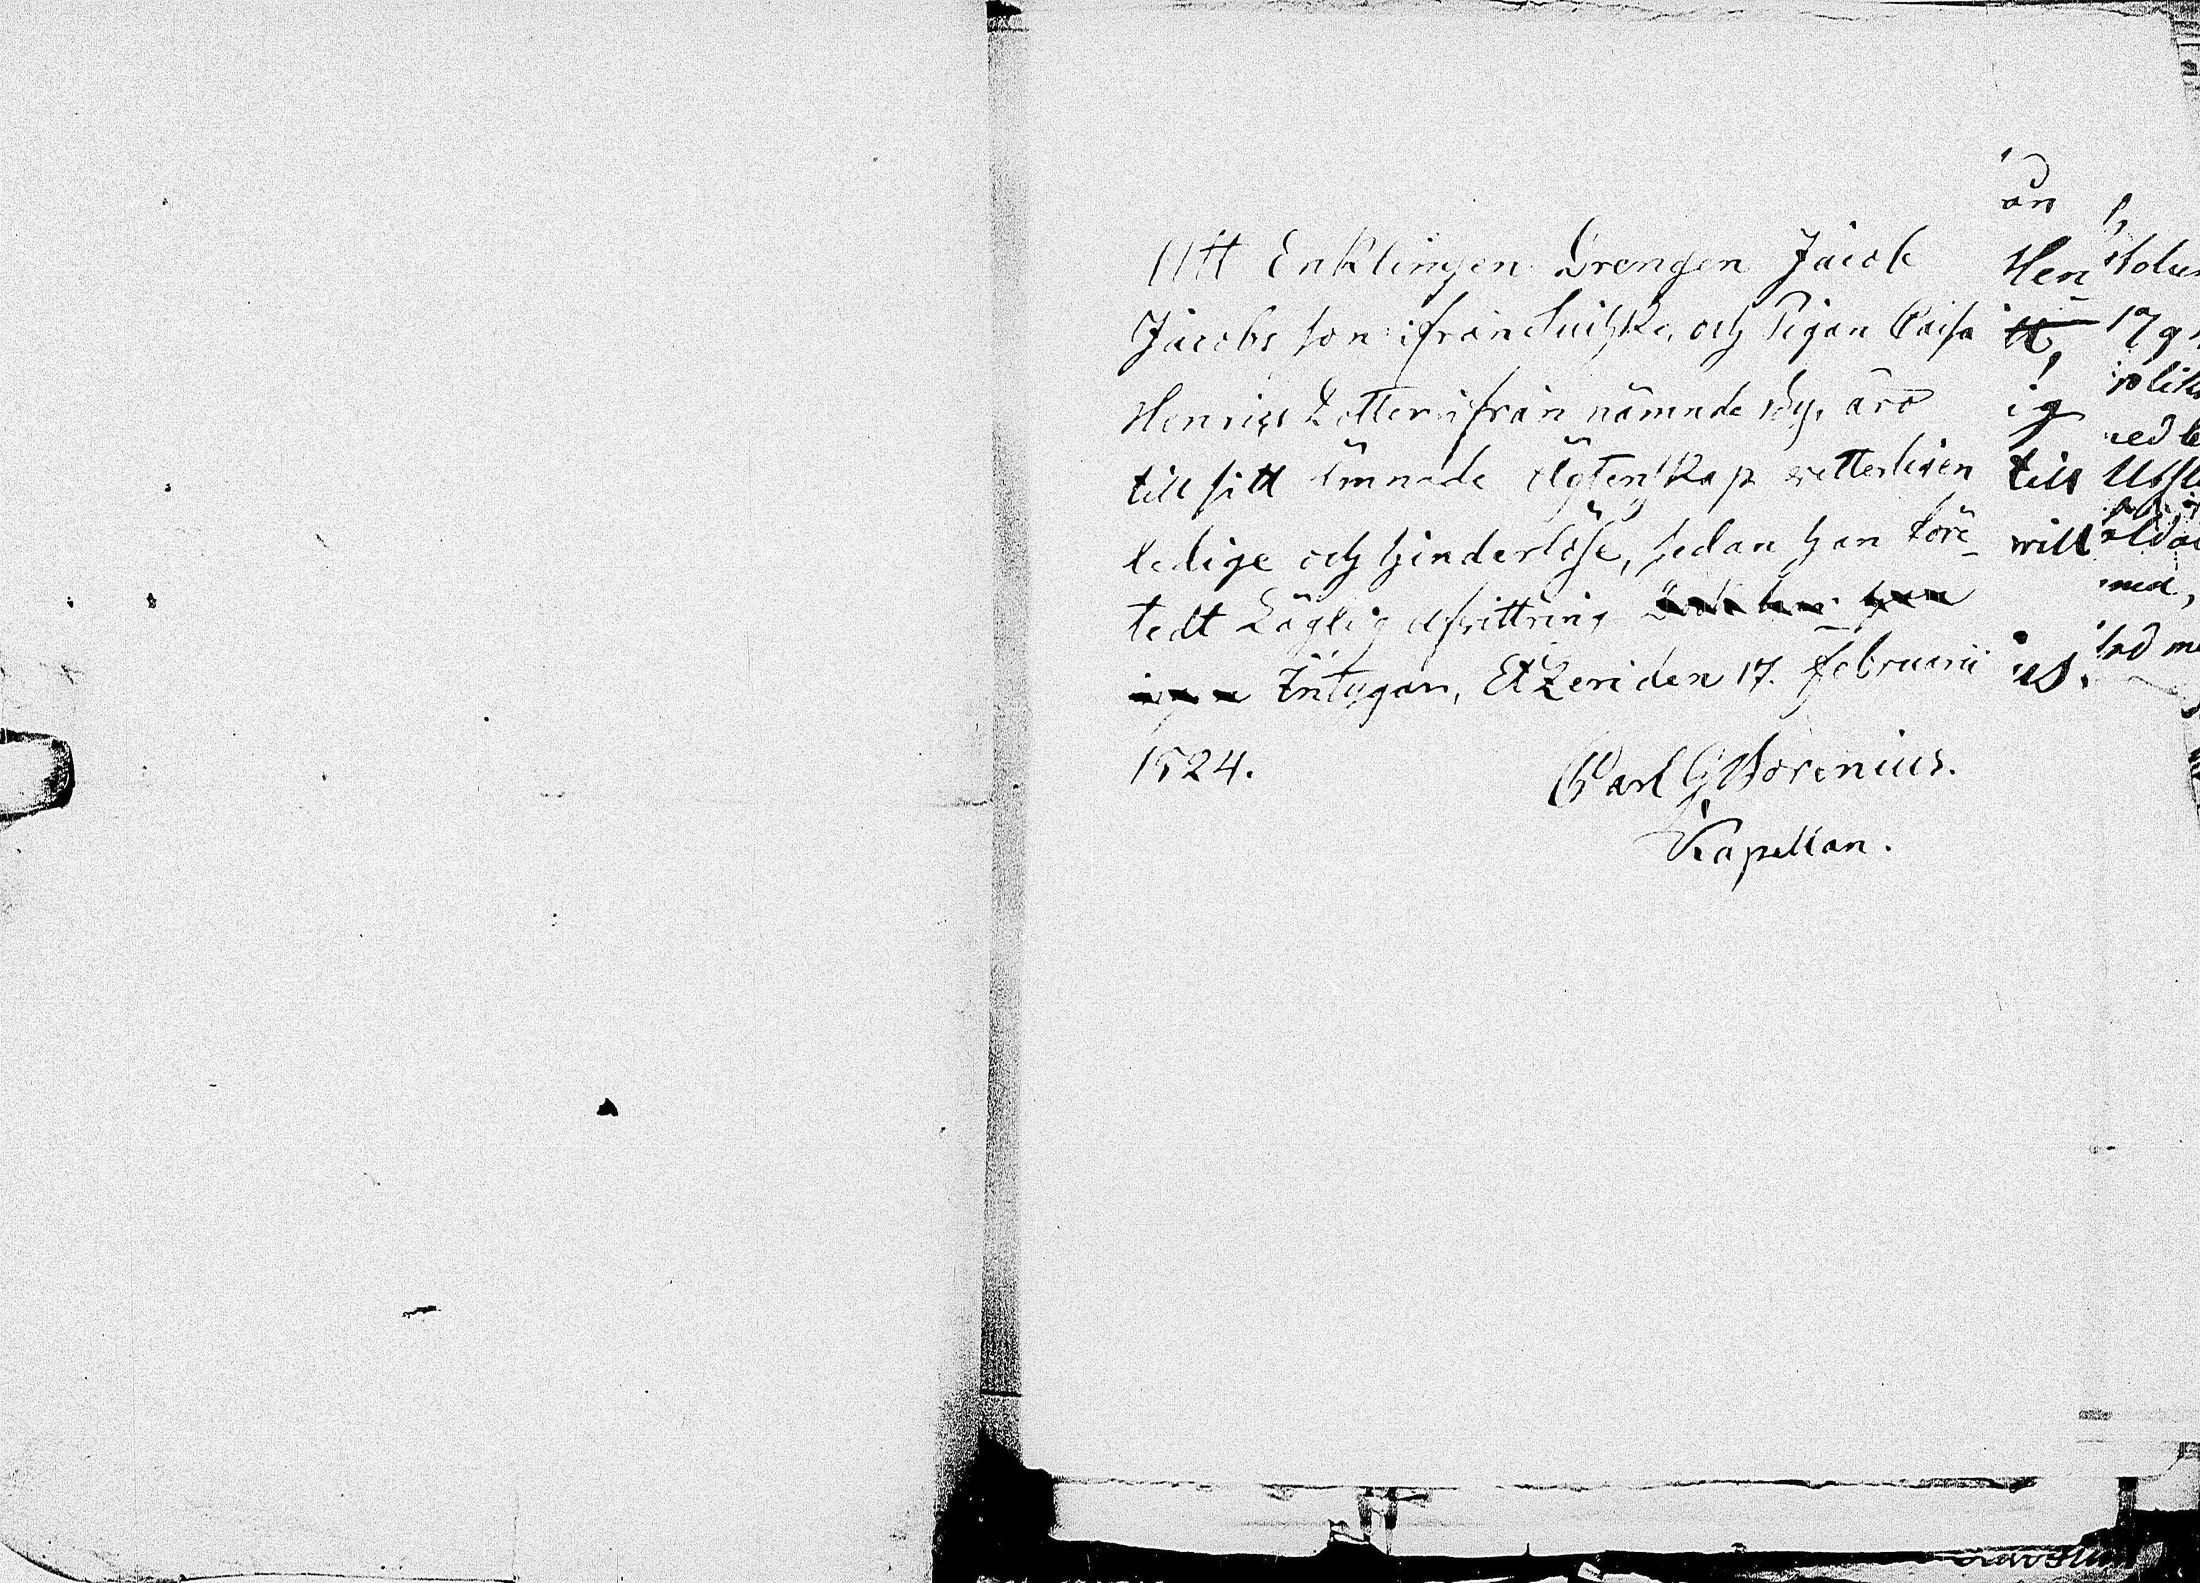 Att Enklingen Drengen Jacob
Jacobs son ifrån Suitzko och Pigan Caisa
Henrics Dotter ifrån nämnde By, äro
till sitt ämnade Ägtenskap vetterligen
ledige och hinderlöse, sedan han före-
tedt Laglig afvittring
Intygar, Etzeri den 17. Februarii
1824.
Carl G Borenius.
Kapellan.
an
Hen
tt,
ig
till
will
us.